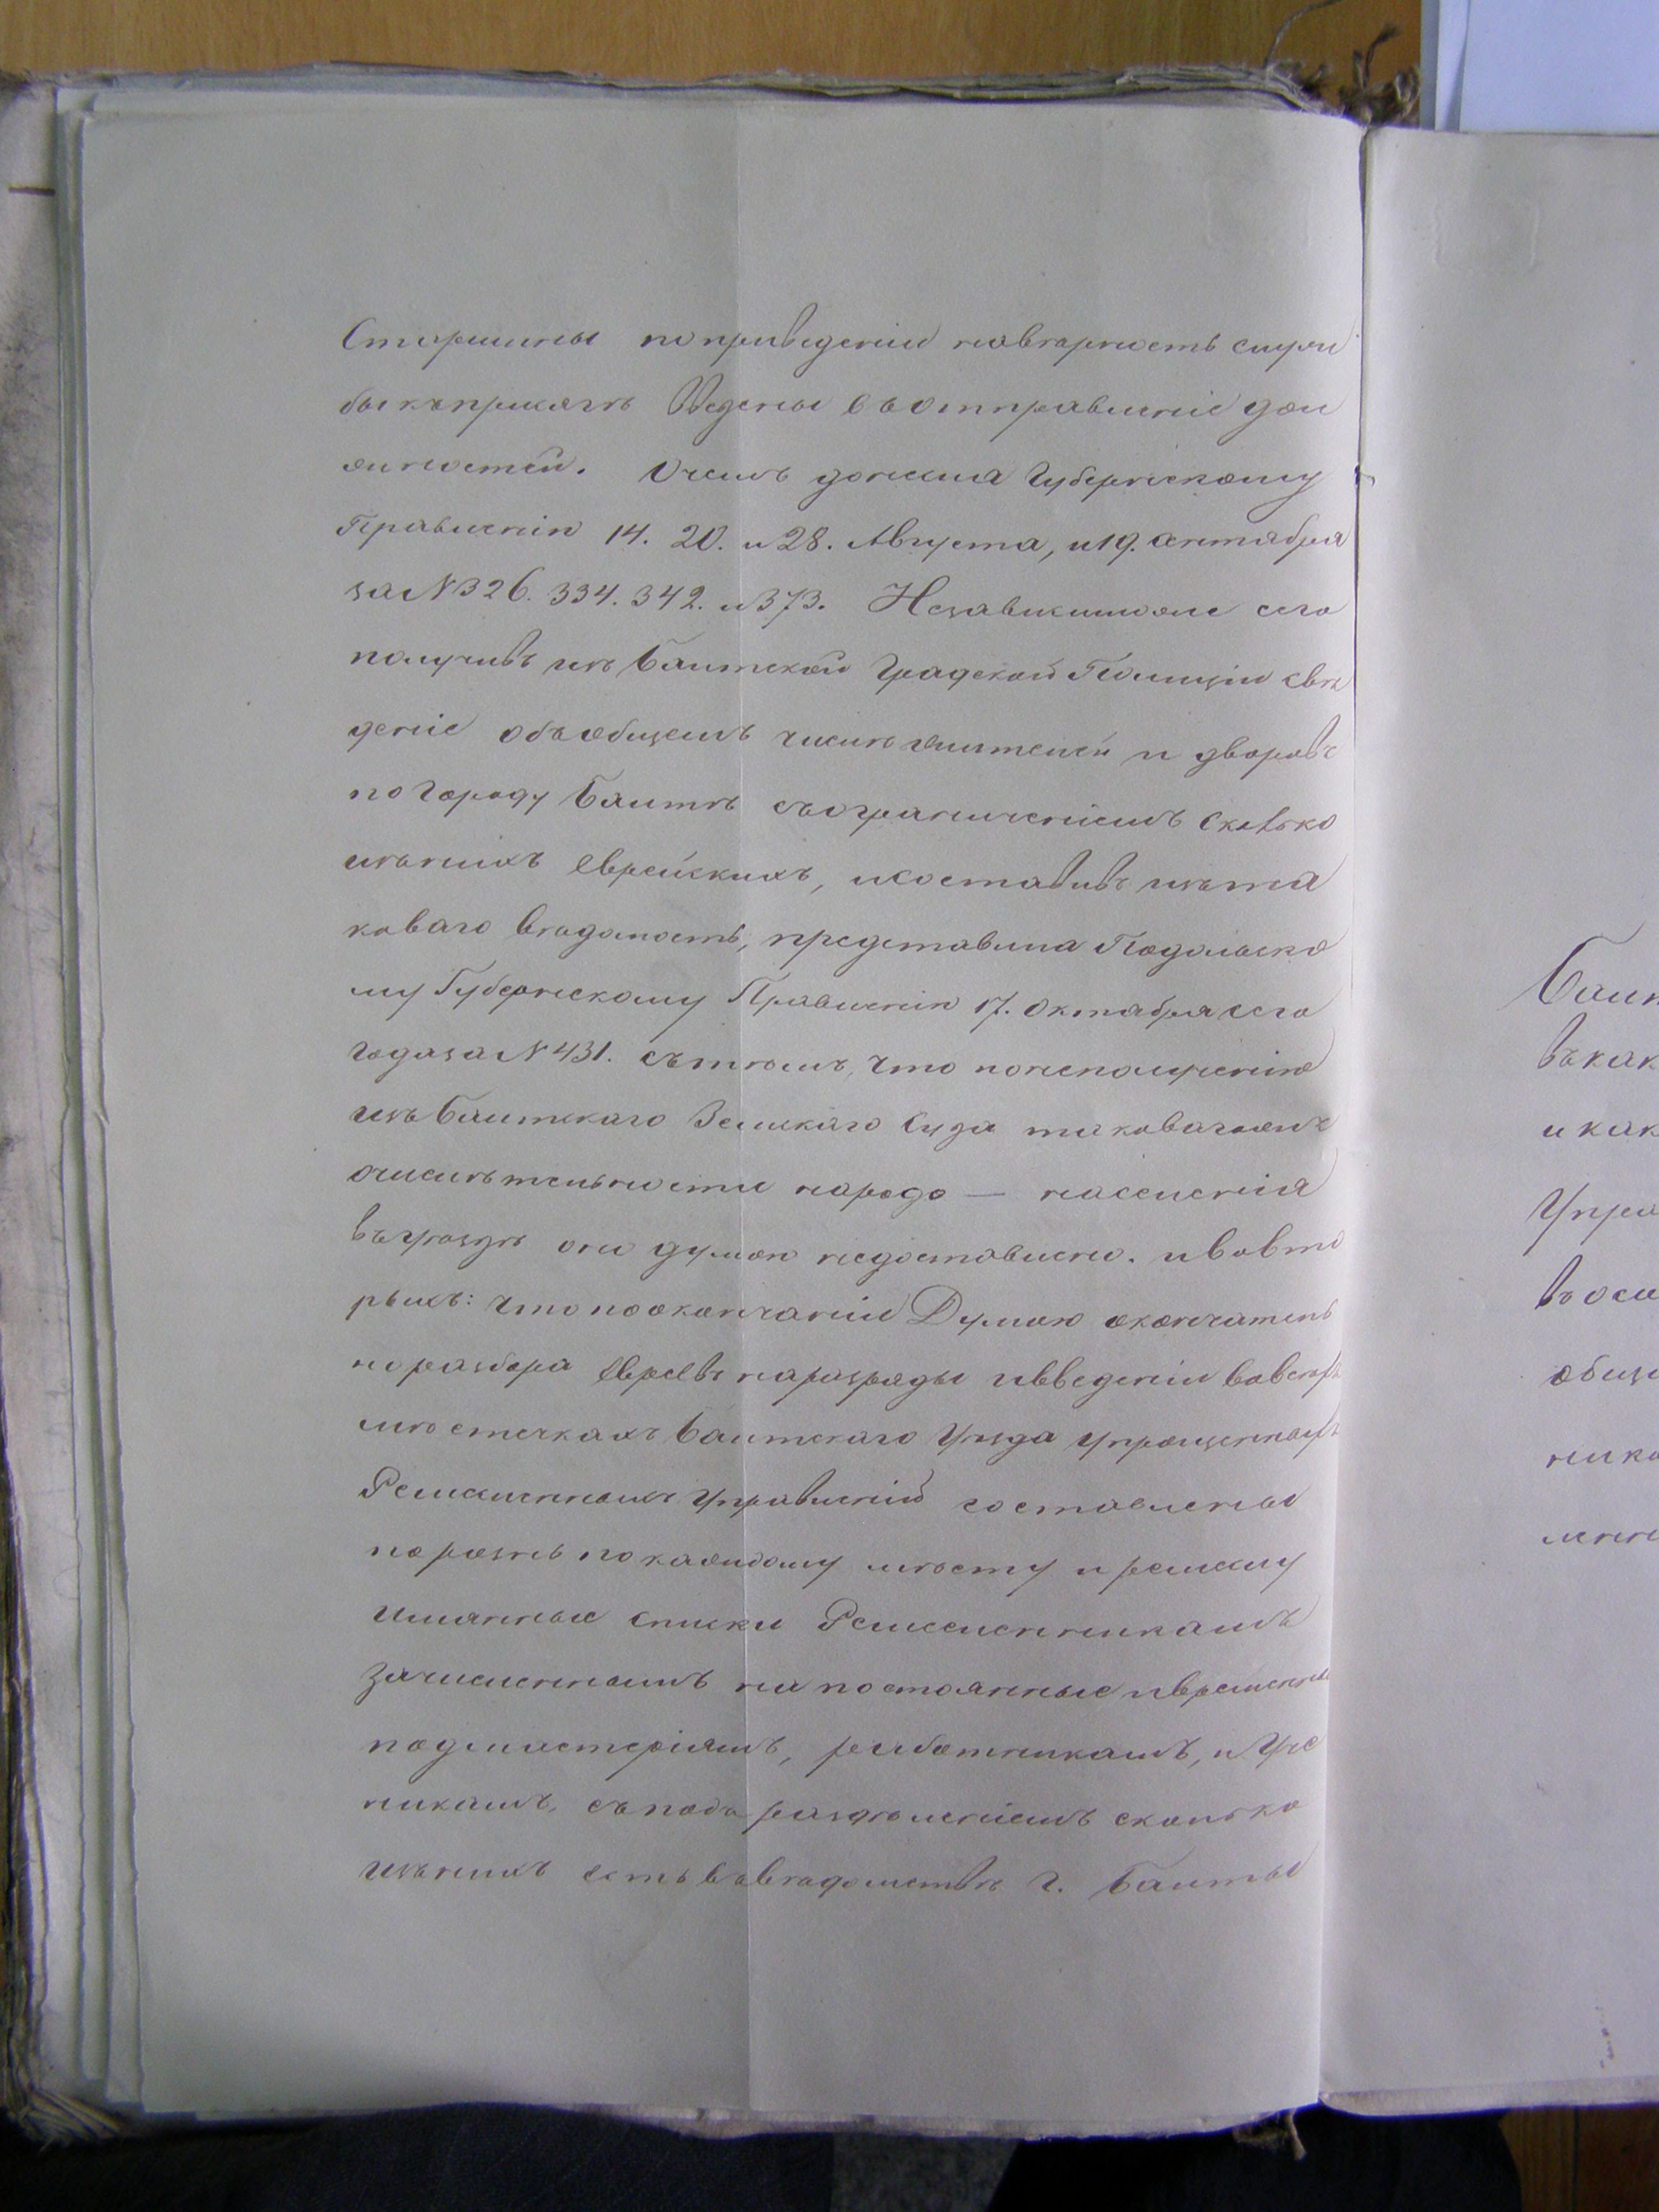 Старшины по приведеніи навѣрность служ
бы къприсягѣ Введены въотправленіе дол
жностей. Очемъ донесла Губернскому
Правленію 14. 20. и 28. Августа, и 19. октября
за N 326. 334. 342. и 373. Независиможе сего
получивъ изъ Балтской Градской Полиціи свѣ
деніе объобщемъ числѣ жителей и дворовъ
по Городу Балтѣ съограниченіемъ сколько
изънихъ Еврейскихъ, исоставивъ изъта
коваго вѣдомость, представила Подольско
му Губернскому Правленію 17. Октября сего
года за N 431. сътѣмъ, что понеполученію
изъ Балтскаго Земскаго Суда таковагожъ
очислительности народо — населенія
въуѣздѣ оно думою недоставлено. ивовто
рыхъ: что поокончаніи Думою окончатель
но разбора Евреевъ наразряды ивведеніи вовсѣхъ
мѣстечкахъ Балтскаго Уѣзда Упрощенныхъ
Ремесленныхъ Управленій составлены
порознь покаждому мѣсту и ремеслу
имянные списки Ремесленникамъ
зачисленнымъ на постоянные ивременные
подмастеріямъ, работникамъ, и Уче
никамъ, съподъ раздѣленіемъ сколько
изънихъ есть вовѣдомствѣ г. Балты
Балт
въкак
и как
Упра
въ осо
общ
нико
менн